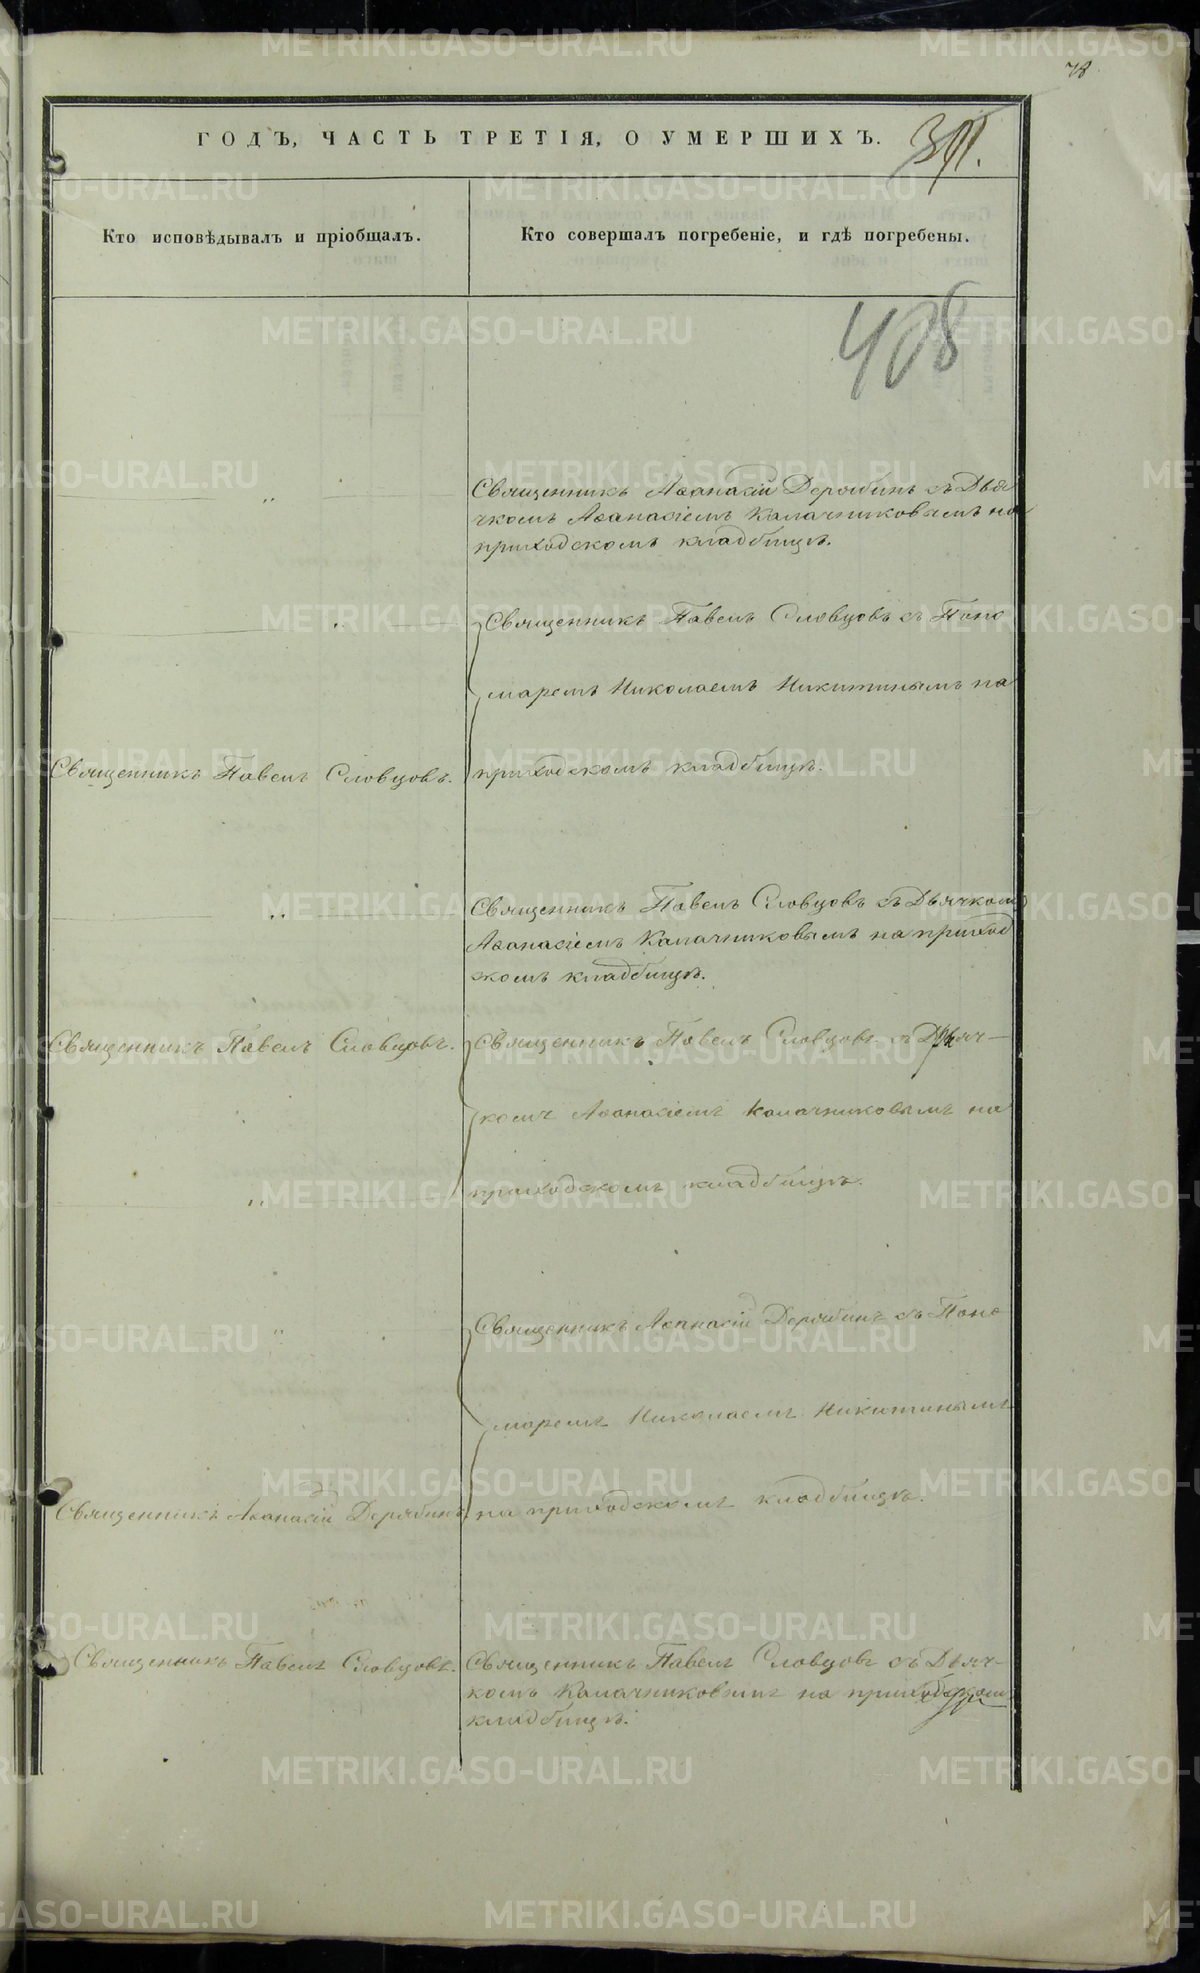 78
ГОДЪ, ЧАСТЬ ТРЕТІЯ, О УМЕРШИХЪ.
Кто исповѣдывалъ и пріобщалъ.
Кто совершалъ погребеніе, и гдѣ погребены.
408
Священникъ Аѳанасій Дерябинъ съ Дья
чкомъ Аѳанасіемъ Калачниковымъ на
приходскомъ кладбищѣ.
Священникъ Павелъ Словцовъ съ Поно
маремъ Николаемъ Никитинымъ на
Священникъ Павелъ Словцовъ.
приходскомъ кладбищѣ.
Священникъ Павелъ Словцовъ съ Дьячкомъ
Аѳанасіемъ Калачниковымъ на приход
скомъ кладбищѣ.
Священникъ Павелъ Словцовъ.
Священникъ Павелъ Словцовъ съ Дьяч-
комъ Аѳанасіемъ Калачниковымъ на
приходскомъ кладбищѣ.
Священникъ Аѳанасій Дерябинъ съ Поно
маремъ Николаемъ Никитинымъ
Священникъ Аѳанасій Дерябинъ
на приходскомъ кладбищѣ.
Священникъ Павелъ Словцовъ.
Священникъ Павелъ Словцовъ съ Дьяч-
комъ Калачниковымъ на приходскомъ
кладбищѣ.
METRIKI.GASO-URAL.RU